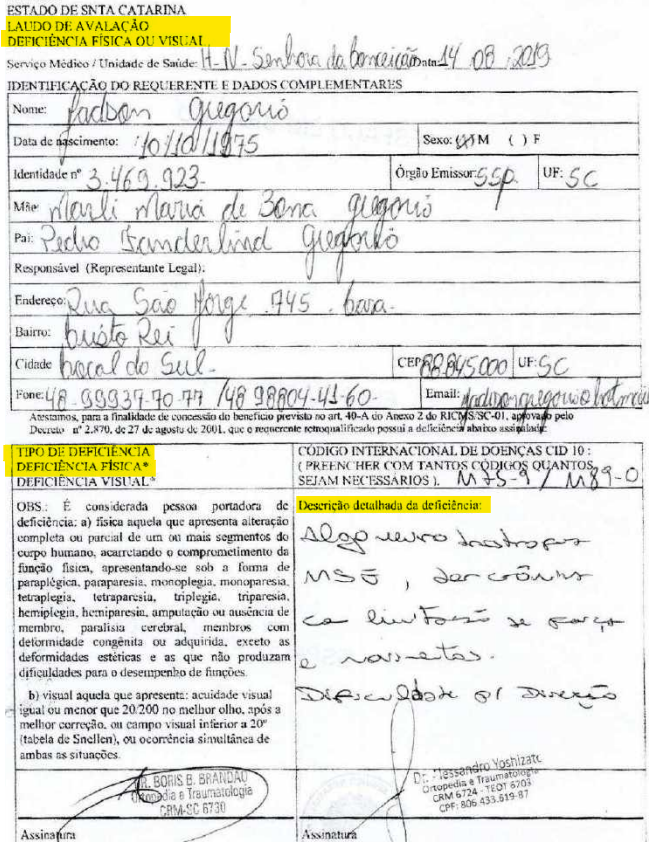 ESTADO DE SNTA CATARINA
LAUDO DE AVALAÇÃO
DEFICIÊNCIA FÍSICA OU VISUAL
Serviço Médico / Unidade de Saúde: H-N. Senhora da Conceição Data: 14 08 2019
IDENTIFICAÇÃO DO REQUERENTE E DADOS COMPLEMENTARES
Nome: Jadson Gregorio
Data de nascimento: 10/10/1975 Sexo: (X) M ( ) F
Identidade nº 3.469.923- Órgão Emissor: SSP UF: SC
Mãe: Marli Maria de Bona Gregorio
Pai: Pedro Gregorio
Responsável (Representante Legal):
Endereço: Rua São Jorge 745 . casa-
Bairro: Cristo Rei
Cidade Cocal do Sul- CEP 88845000 UF: SC
Fone: 48-99937-70-77 /48 98804-41-60- Email:
Atestamos, para a finalidade de concessão do benefício previsto no art. 40-A do Anexo 2 do RICMS/SC-01, aprovado pelo
Decreto nº 2.870, de 27 de agosto de 2001, que o requerente retroqualificado possui a deficiência abaixo assinalada:
TIPO DE DEFICIÊNCIA
DEFICIÊNCIA FÍSICA*
DEFICIÊNCIA VISUAL*
CÓDIGO INTERNACIONAL DE DOENÇAS CID 10 :
( PREENCHER COM TANTOS CÓDIGOS QUANTOS
SEJAM NECESSÁRIOS ). M75-9 / M89-0
OBS.: É considerada pessoa portadora de
deficiência: a) física aquela que apresenta alteração
completa ou parcial de um ou mais segmentos do
corpo humano, acarretando o comprometimento da
função física, apresentando-se sob a forma de
paraplégica, paraparesia, monoplegia, monoparesia,
tetraplegia, tetraparesia, triplegia, triparesia,
hemiplegia, hemiparesia, amputação ou ausência de
membro, paralisia cerebral, membros com
deformidade congênita ou adquirida, exceto as
deformidades estéticas e as que não produzam
dificuldades para o desempenho de funções.
b) visual aquela que apresenta: acuidade visual
igual ou menor que 20/200 no melhor olho, após a
melhor correção, ou campo visual inferior a 20º
(tabela de Snellen), ou ocorrência simultânea de
ambas as situações.
Descrição detalhada da deficiência:
Algo neuro
MSE, dor crônica
limitação de força
e
Dificuldade p/ Direção
DR. BORIS B. BRANDÃO
Ortopedia e Traumatologia
CRM-SC 6730
Assinatura
Dr. Alessandro Yoshizato
Ortopedia e Traumatologia
CRM 6724 - TEOT 6203
CPF: 806.433.619-87
Assinatura